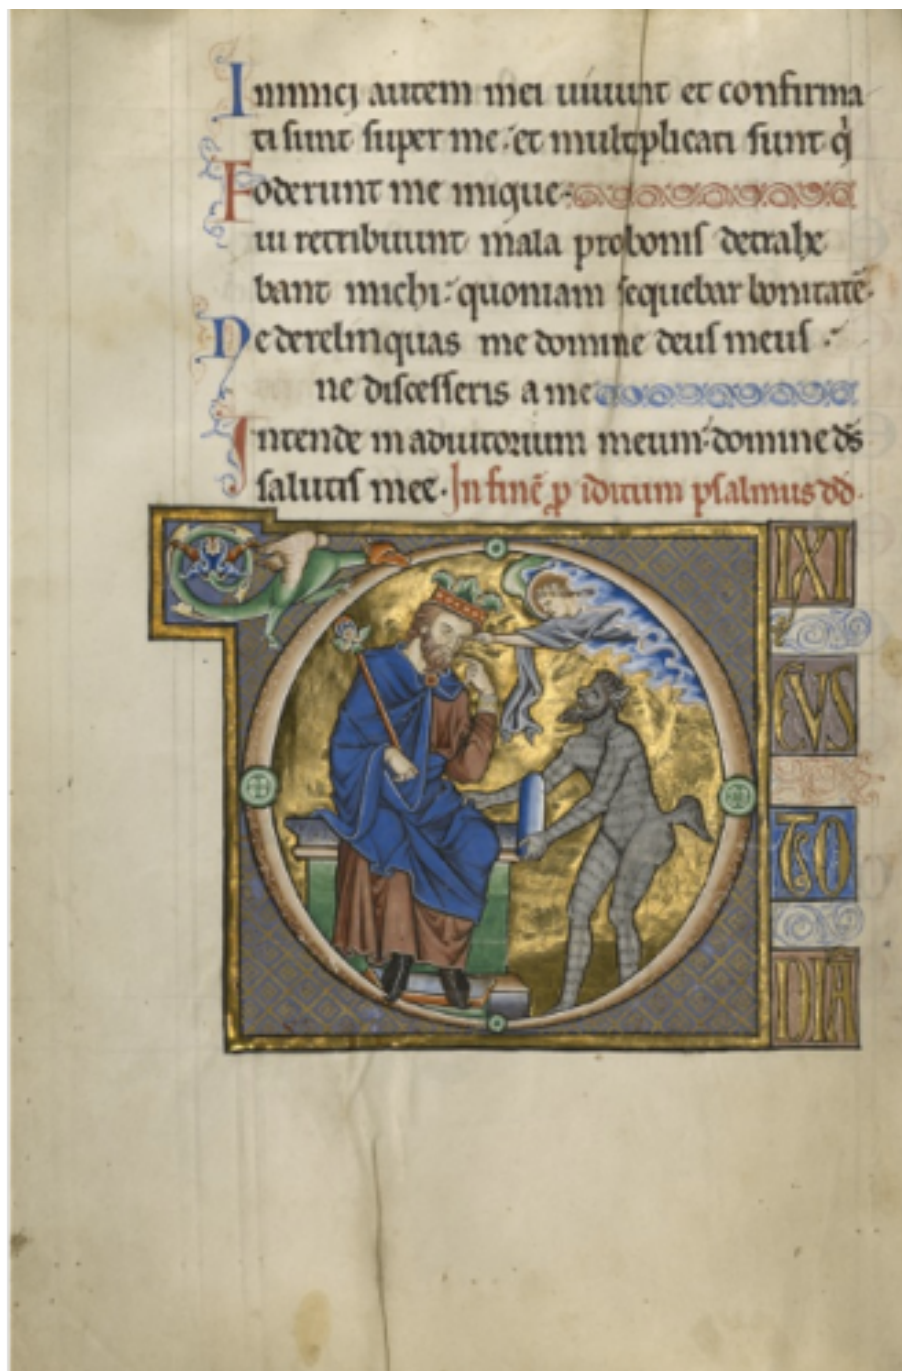 Inimici autem mei uiuunt et confirma
ti sunt super me : et multiplicati sunt q̇
oderunt me inique.
Qui retribuunt mala pro bonis detrahe
bant michi : quoniam sequebar bonitatē.
Ne derelinquas me domine deus meus .
ne discesseris a me
Intende in adiutorium meum : domine d̄s
salutis mee. In finē p̱ iditum psalmus dd.
D
IXI
CVS
TO
DIĀ